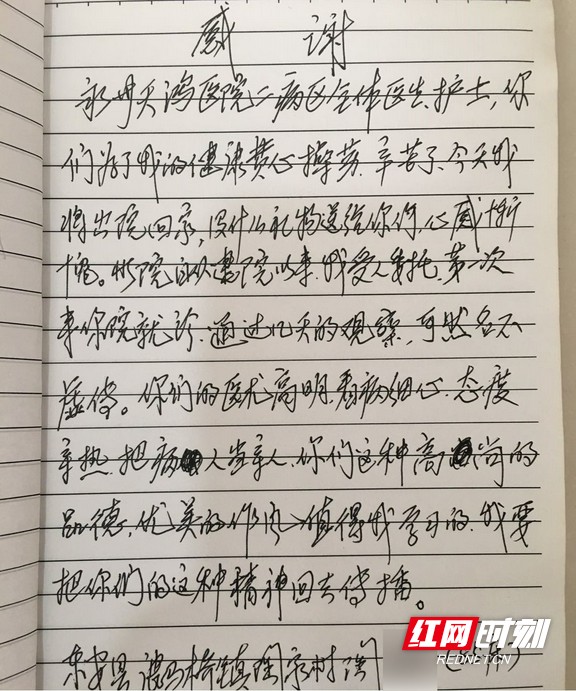 感 谢
永州天鸿医院二病区全体医生、护士,你
们为了我的健康费心操劳、辛苦了、今天我
将出院回家,没什么礼物送给你们,心感惭
愧。你院自从建院以来,我受人委托,第一次
来你院就诊、通过几天的观察,果然名不
虚传。你们的医术高明、看病细心、态度
亲热、把病人当亲人、你们这种高尚的
品德,优美的作风、值得我学习的,我要
把你们的这种精神回去传播。
东安县 镇 家村
红网时刻
REDNET.CN